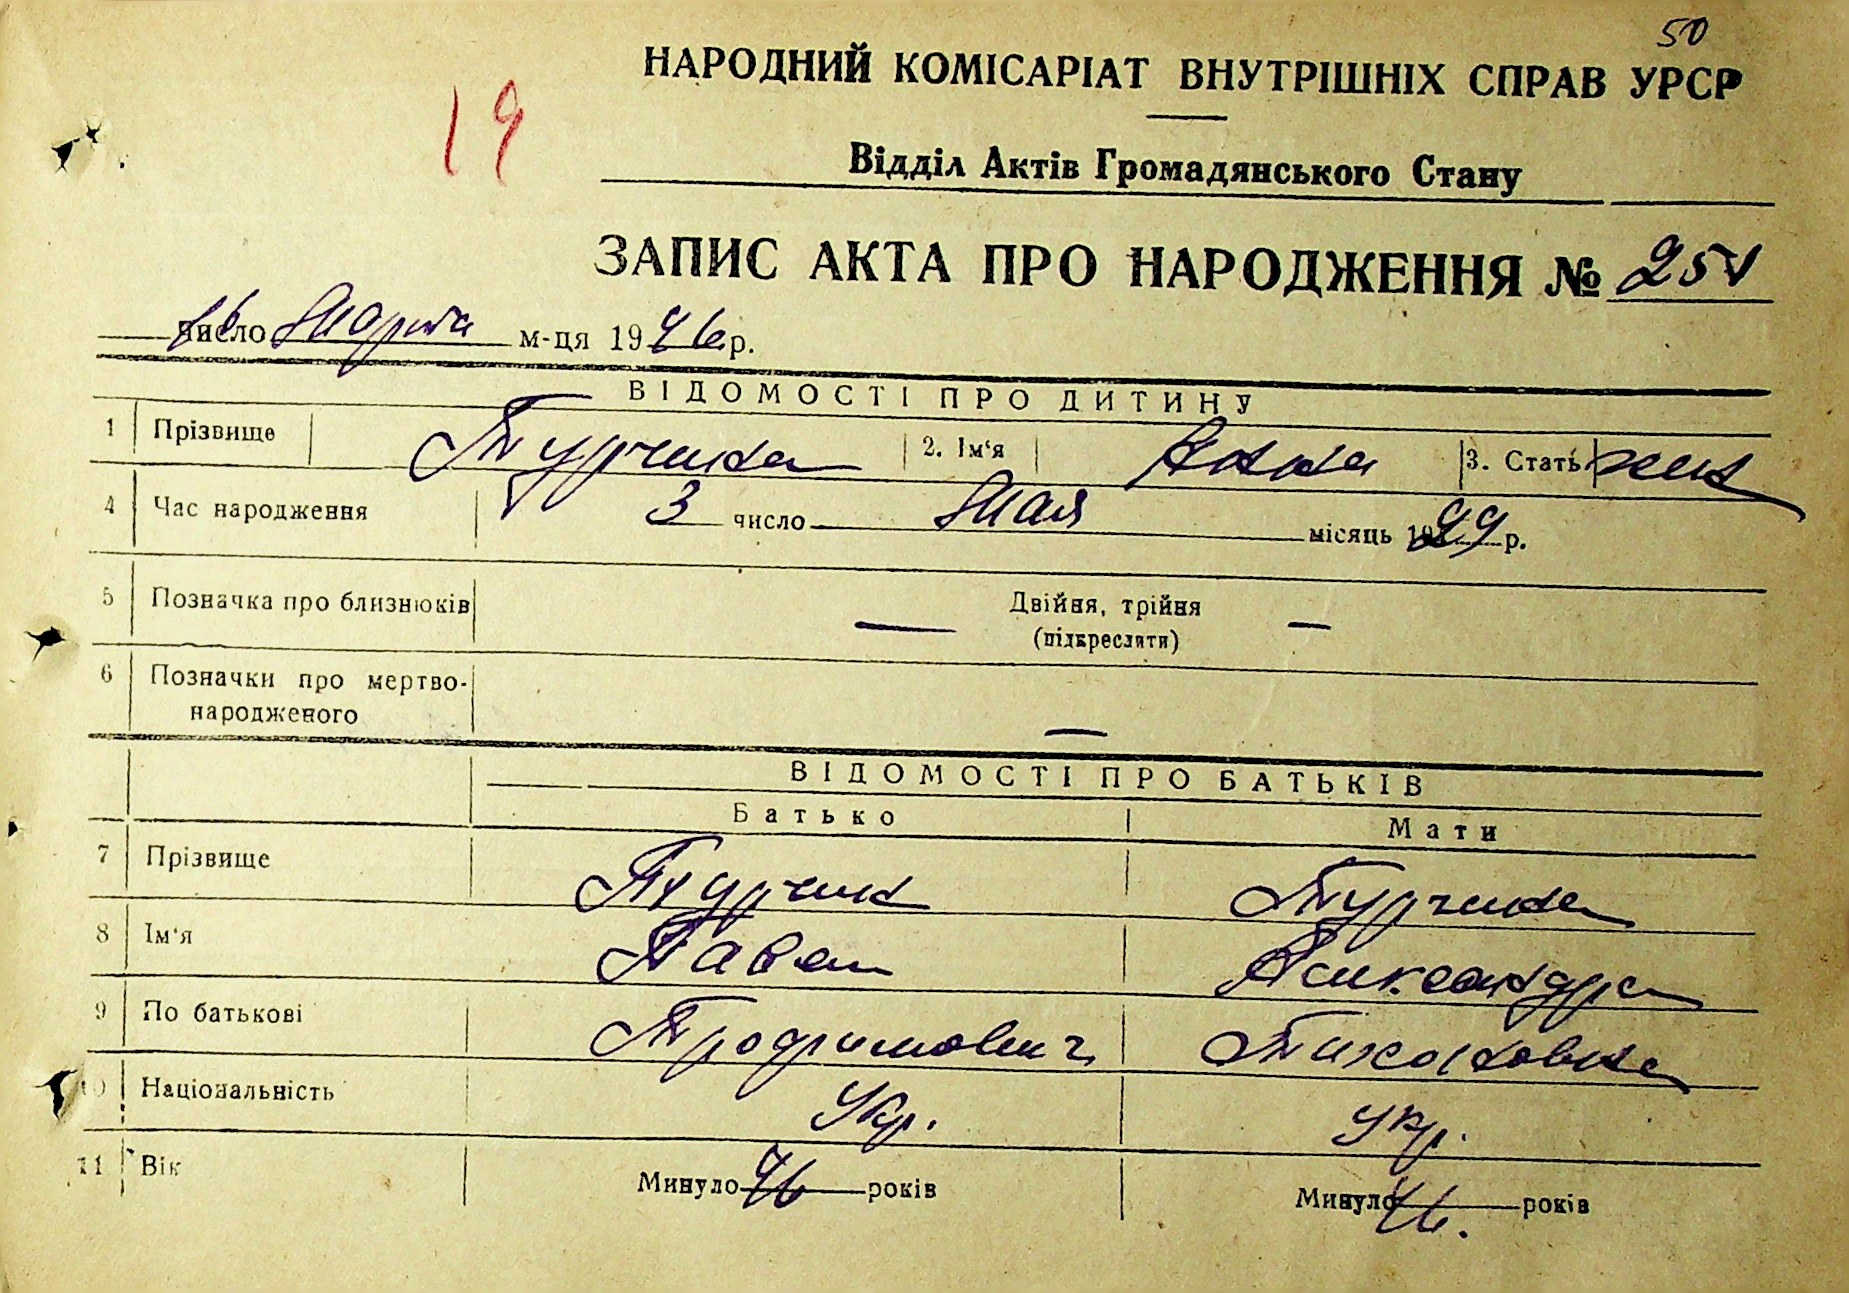 50
НАРОДНИЙ КОМІСАРІАТ ВНУТРІШНІХ СПРАВ УРСР
19
Відділ Актів Громадянського Стану
ЗАПИС АКТА ПРО НАРОДЖЕННЯ № 251
16 число Марта м-ця 1946 р.
ВІДОМОСТІ ПРО ДИТИНУ
1 Прізвище Турчина 2. Ім'я Анна 3. Стать жен
4 Час народження 3 число Мая місяць 1929 р.
5 Позначка про близнюків — Двійня, трійня —
(підкреслити)
6 Позначки про мертво-
народженого —
ВІДОМОСТІ ПРО БАТЬКІВ
Батько Мати
7 Прізвище Турчин Турчина
8 Ім'я Павел Александра
9 По батькові Трофимович Тихоновна
10 Національність Укр. Укр.
11 Вік Минуло 46 років Минуло 46. років